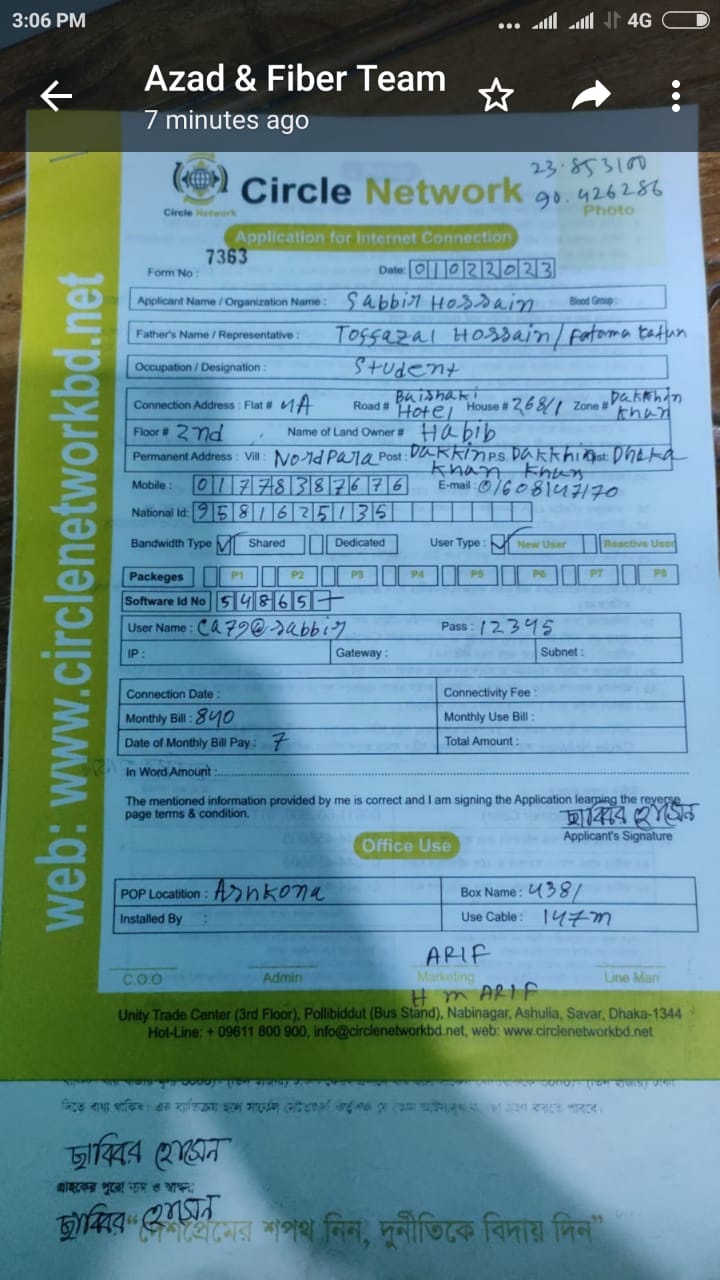 3:06 PM 4G
Azad & Fiber Team
7 minutes ago
23.853100
90.426286
Circle Network
Circle Network
Photo
Application for Internet Connection
7363
Form No :
Date: 01022023
Applicant Name / Organization Name : Sabbir Hossain Blood Group :
Father's Name / Representative : Toffazal Hossain / Fatama katun
Occupation / Designation : Student
Connection Address : Flat # 4A Road # Baishaki Hotel House # 268/1 Zone # Dakkhin khan
Floor # 2nd Name of Land Owner # Habib
Permanent Address : Vill : NordPara Post : Dakkin khan P.S. Dakkhin khan Dist: Dhaka
Mobile : 01778387676 E-mail : 01608147170
National Id: 9581625135
Bandwidth Type Shared Dedicated User Type : New User Reactive User
Packeges P1 P2 P3 P4 P5 P6 P7 P8
Software Id No 54865
User Name : ca79@sabbir Pass : 12345
IP : Gateway : Subnet :
Connection Date : Connectivity Fee :
Monthly Bill : 840 Monthly Use Bill :
Date of Monthly Bill Pay : 7 Total Amount :
In Word Amount :
The mentioned information provided by me is correct and I am signing the Application learning the reverse
page terms & condition.
ছাব্বির হোসেন
Applicant's Signature
Office Use
POP Locatition : Ashkona Box Name : 438/
Installed By : Use Cable : 147m
ARIF
C.O.O Admin Marketing Line Man
H m ARIF
Unity Trade Center (3rd Floor), Pollibiddut (Bus Stand), Nabinagar, Ashulia, Savar, Dhaka-1344
Hot-Line: + 09611 800 900, info@circlenetworkbd.net, web: www.circlenetworkbd.net
web: www.circlenetworkbd.net
দিতে বাধ্য থাকিব। এর ব্যতিক্রম হলে সার্কেল নেটওয়ার্ক কর্তৃপক্ষ যে কোন আইনানুগ ব্যবস্থা গ্রহণ করতে পারবে।
ছাব্বির হোসেন
গ্রাহকের পুরো নাম ও স্বাক্ষর
ছাব্বির হোসেন
“দেশপ্রেমের শপথ নিন, দুর্নীতিকে বিদায় দিন”